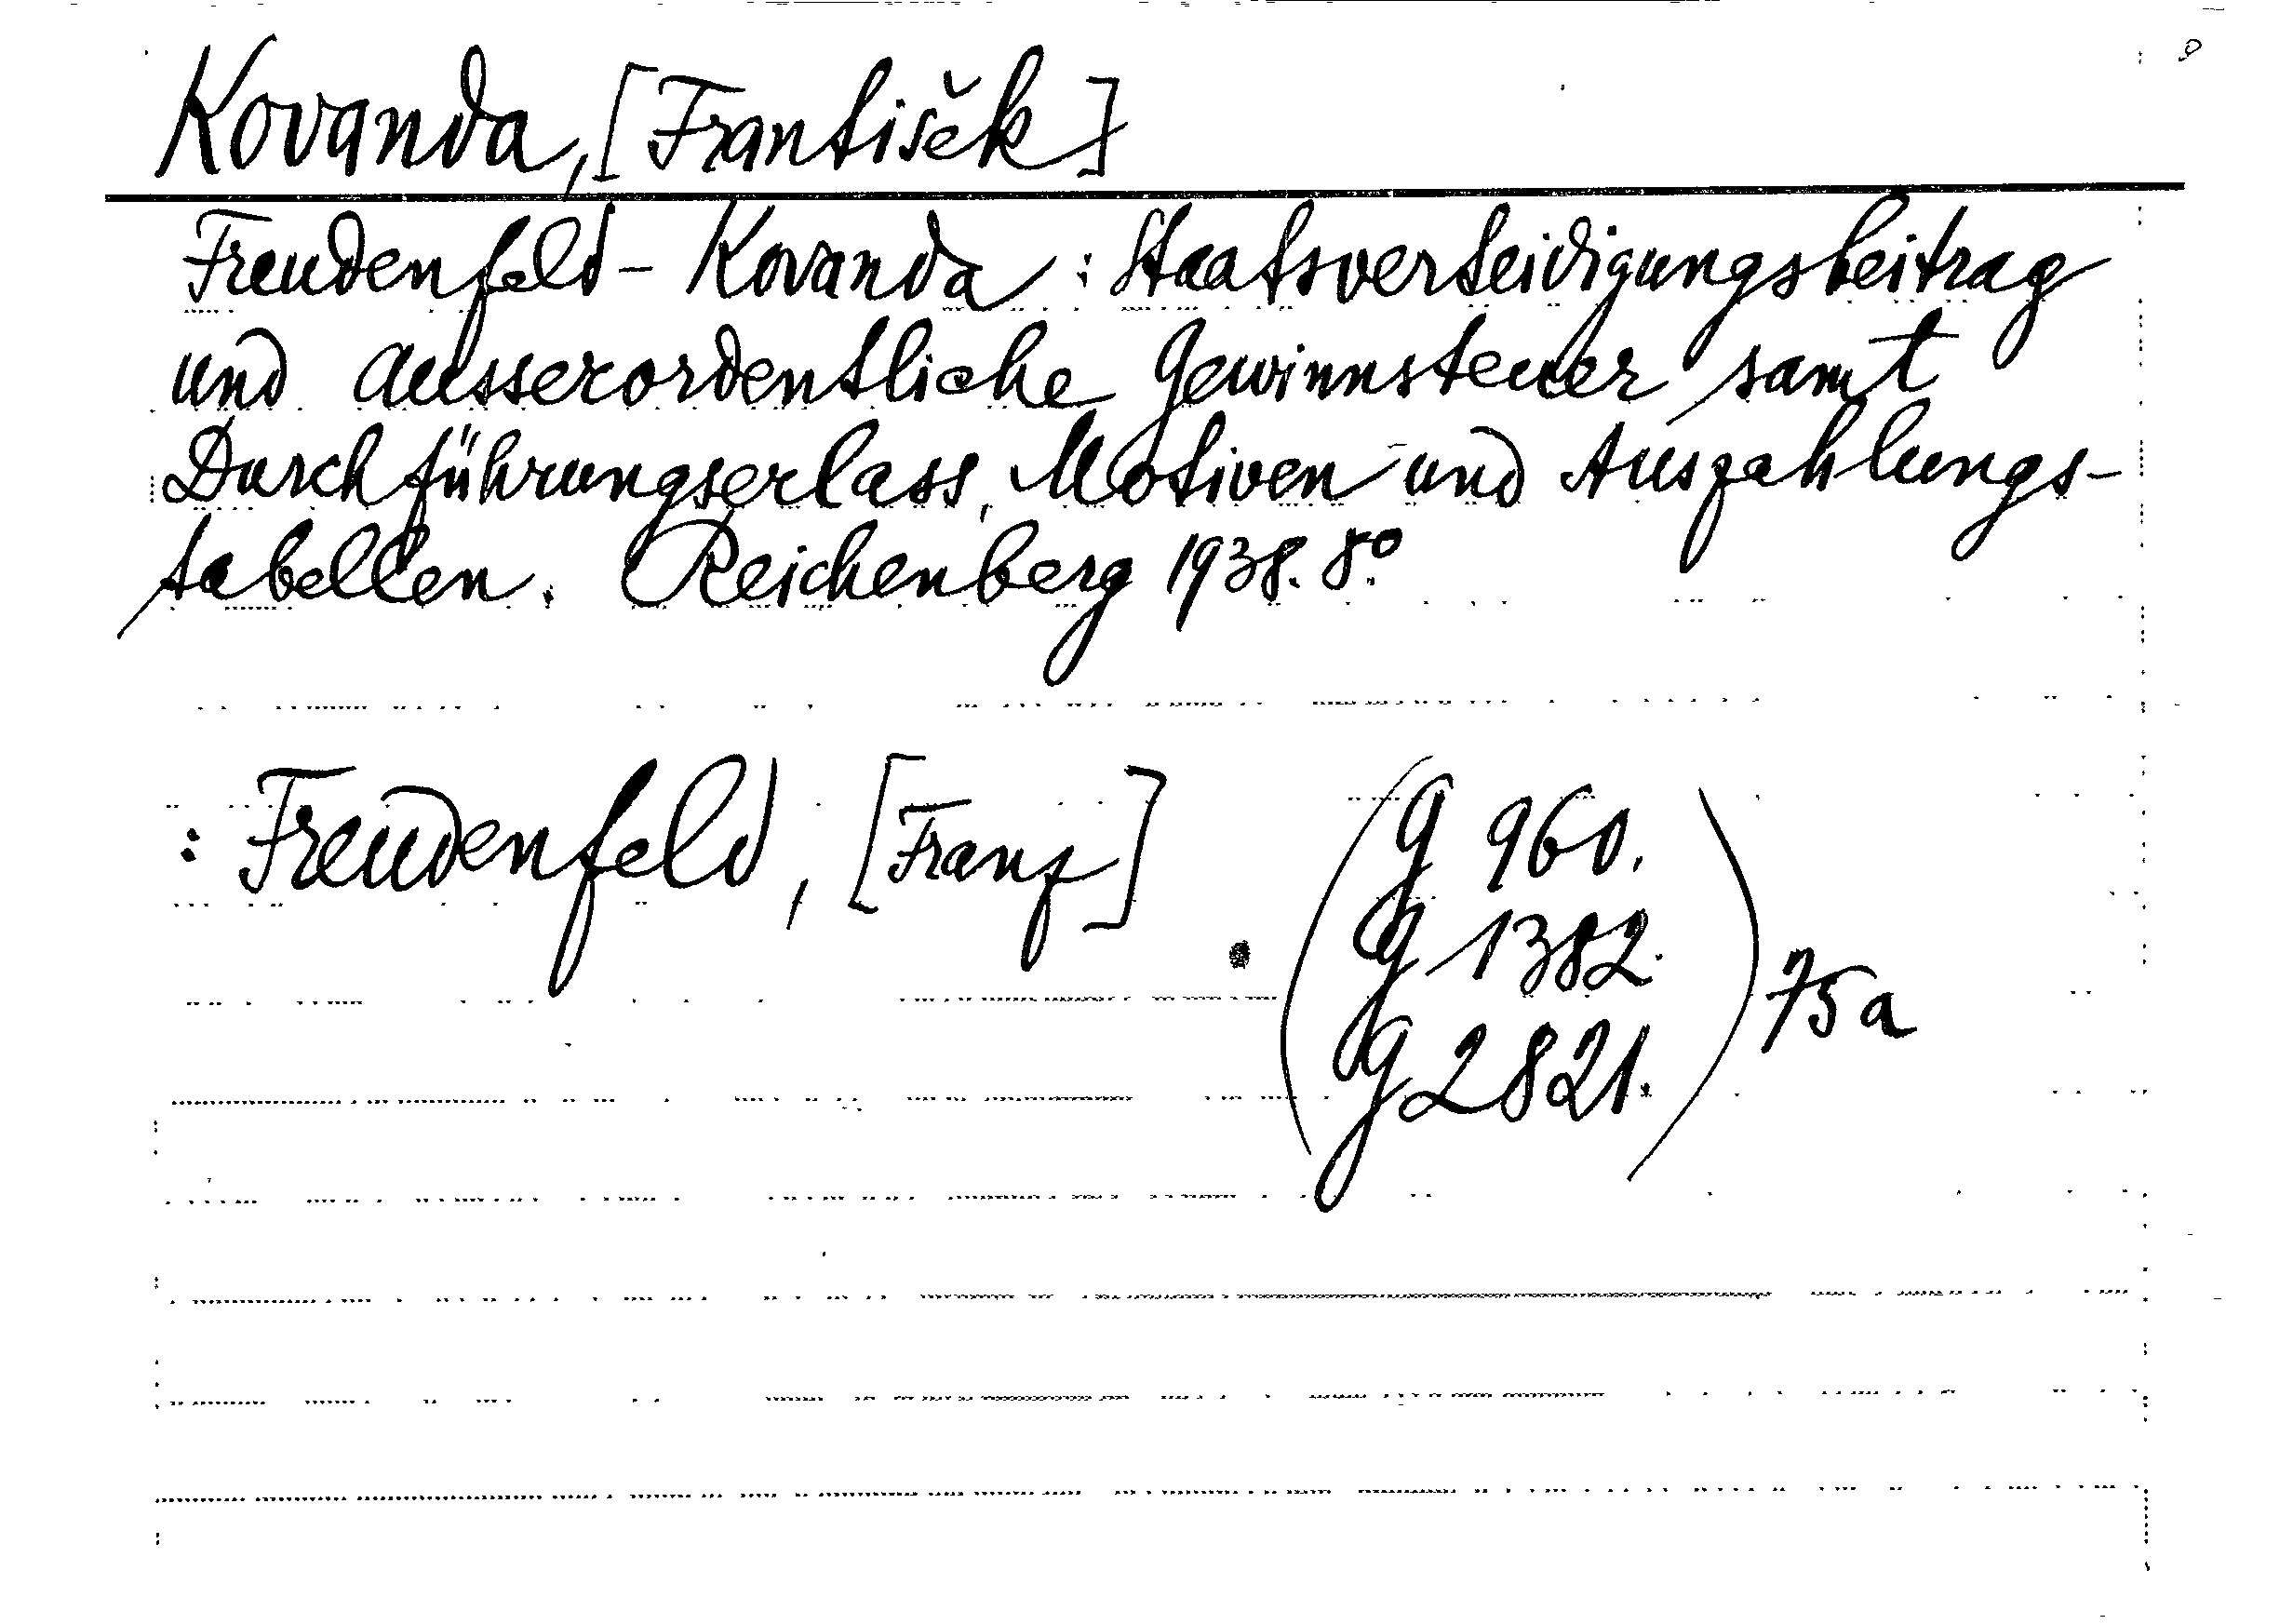 Kovanda, [František]
Freudenfeld - Kovanda : Staatsverteidigungsbeitrag
und ausserordentliche Gewinnsteuer samt
Durchführungserlass, Motiven und Auszahlungs-
tabellen. Reichenberg 1938. 8°.
: Freudenfeld, [Franz]
(G 960.
G 1382.
G 2821.) 75a